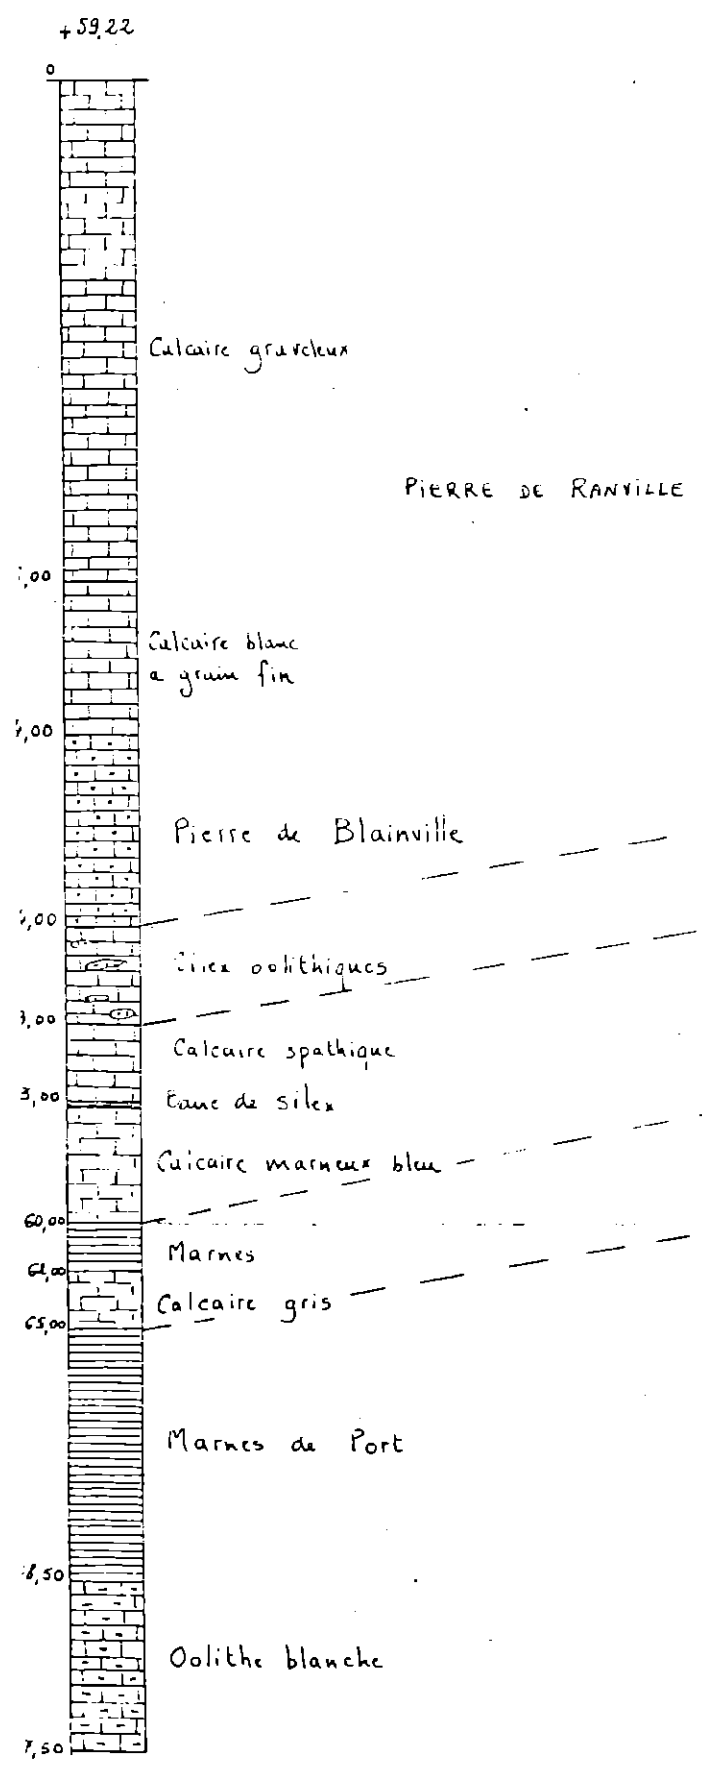 +59,22
0
Calcaire graveleux
PIERRE DE RANVILLE
,00
Calcaire blanc
a grain fin
,00
Pierre de Blainville
,00
oolithiques
,00
Calcaire spathique
3,00
Banc de silex
Calcaire marneux bleu
60,00
Marnes
62,00
Calcaire gris
65,00
Marnes de Port
8,50
Oolithe blanche
7,50